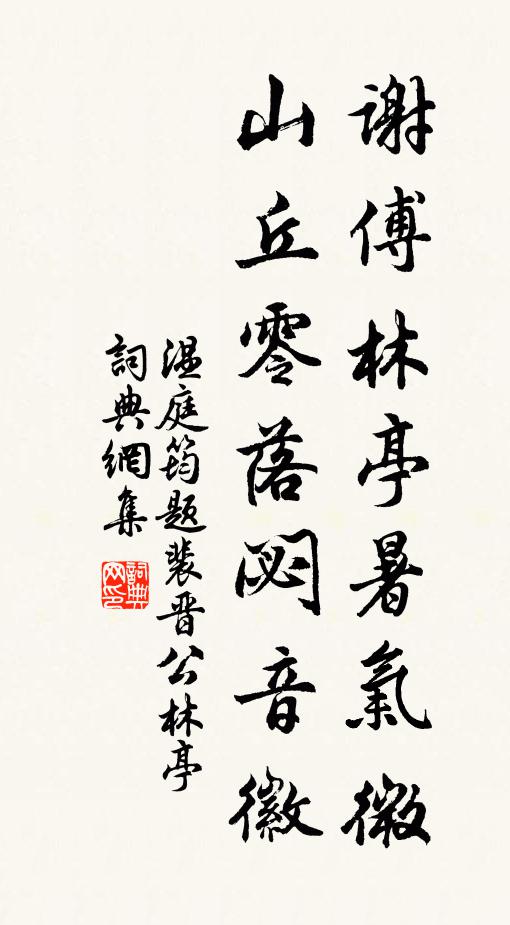 謝傅林亭暑氣微
山丘零落閟音徽
溫庭筠題裴晉公林亭
詞典網集
詞典網印